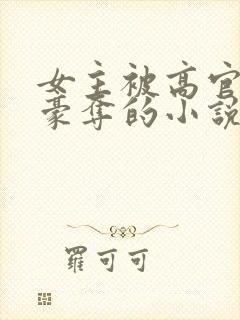 女主被高官
豪奪的小說
羅可可